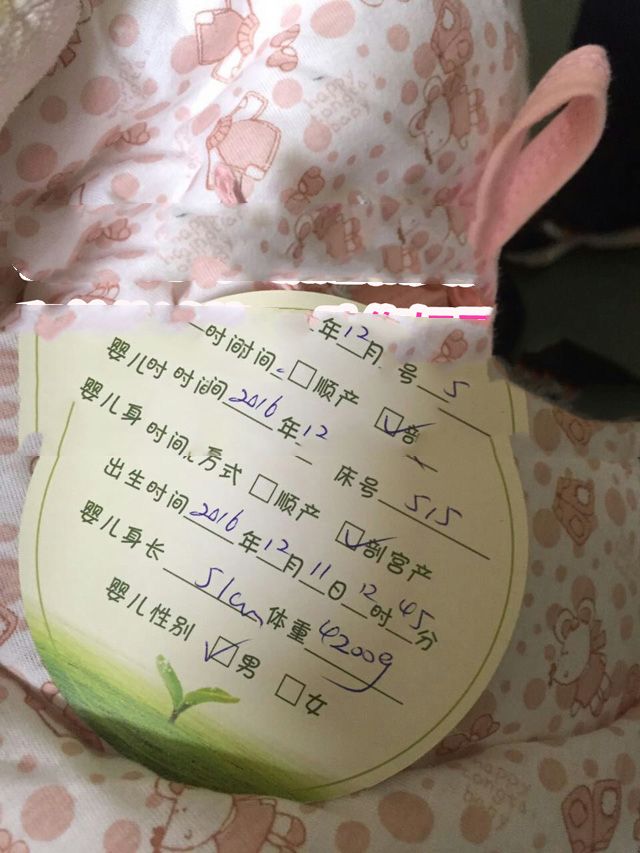 年12月 号 5
时间时间 □顺产 ☑剖
婴儿时时间 2016 年12
床号 515
婴儿身时间 方式 □顺产 ☑剖宫产
出生时间 2016 年 12 月 11 日 12 时 45 分
婴儿身长 51cm 体重 4200g
婴儿性别 ☑男 □女